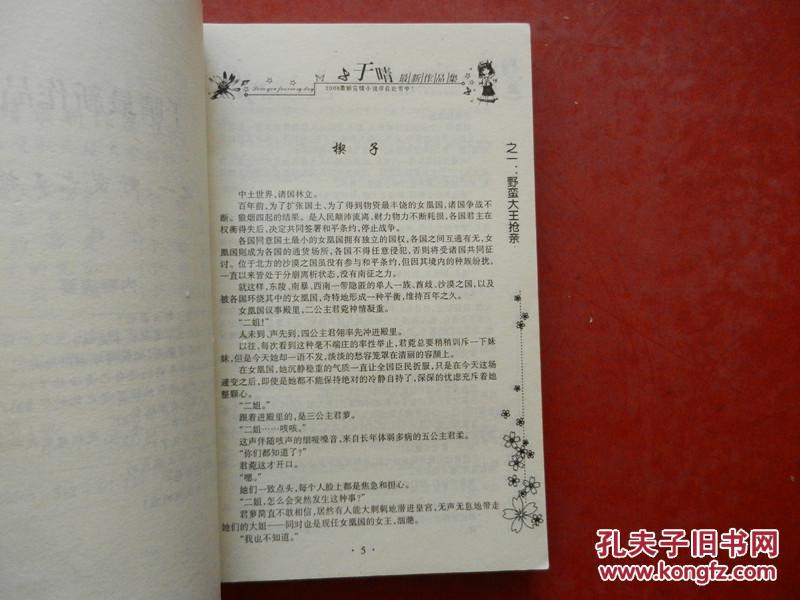 于晴 最新作品集
2008最新言情小说尽在此书中!
之一：野蛮大王抢亲
楔子
中土世界,诸国林立。
百年前,为了扩张国土、为了得到物资最丰饶的女凰国,诸国争战不
断。狼烟四起的结果。是人民颠沛流离、财力物力不断耗损,各国君主在
权衡得失后,决定共同签署和平条约,停止战争。
各国同意国土最小的女凰国拥有独立的国权,各国之间互通有无,女
凰国则成为各国的通货场所,各国不得任意侵犯,否则将受诸国共同征
讨。位于北方的沙漠之国虽没有参与和平条约,但因其境内的种族纷扰,
一直以来皆处于分崩离析状态,没有南征之力。
就这样,东陵、南暴、西南一带隐匿的单人一族、酋歧、沙漠之国,以及
被各国环绕其中的女凰国,奇特地形成一种平衡,维持百年之久。
女凰国议事殿里,二公主君菀神情凝重。
“二姐!”
人未到、声先到,四公主君翎率先冲进殿里。
以往,每次看到这种毫不端庄的率性举止,君菀总要稍稍训斥一下妹
妹,但是今天她却一语不发,淡淡的愁容笼罩在清丽的容颜上。
在女凰国,她沉静稳重的气质一直让全国臣民折服,只是在今天这场
遽变之后,即使是她都不能保持绝对的冷静自持了,深深的忧虑充斥着她
整颗心。
“二姐。”
跟着进殿里的,是三公主君萝。
“二姐……咳咳。”
这声伴随咳声的细哑嗓音,来自长年体弱多病的五公主君柔。
“你们都知道了?”
君菀这才开口。
“嗯。”
她们一致点头,每个人脸上都是焦急和担心。
“二姐,怎么会突然发生这种事?”
君萝简直不敢相信,居然有人能大剌剌地潜进皇宫,无声无息地带走
她们的大姐——同时也是现任女凰国的女王,湍滟。
“我也不知道。”
· 5 ·
孔夫子旧书网
www.kongfz.com